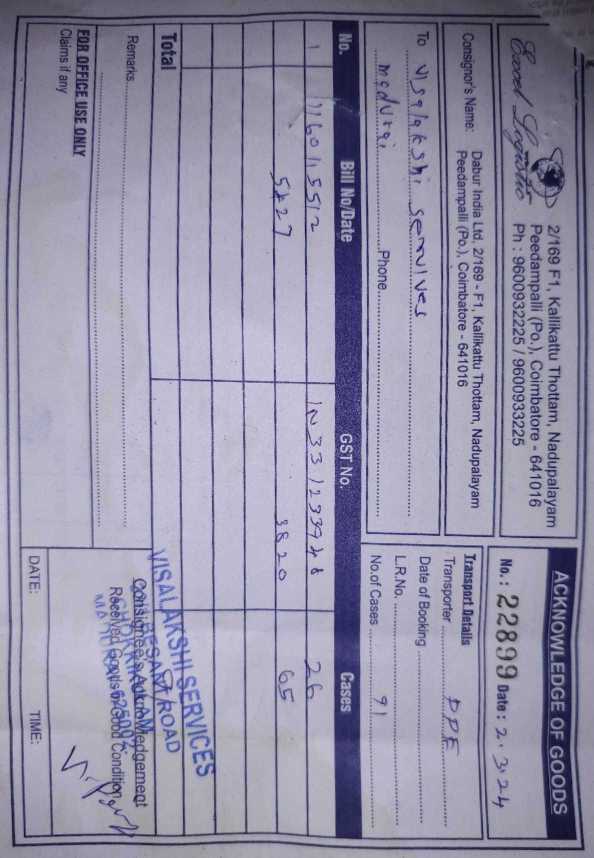 Excel Logistic
2/169 F1, Kallikattu Thottam, Nadupalayam
Peedampalli (Po.), Coimbatore - 641016
Ph : 9600932225 / 9600933225
ACKNOWLEDGE OF GOODS
No.: 22899 Date: 2.3.24
Consignor's Name: Dabur India Ltd, 2/169 - F1, Kallikattu Thottam, Nadupalayam
Peedampalli (Po.), Coimbatore - 641016
To visalakshi servives
madurai Phone
Transport Details
Transporter DPE
Date of Booking
L.R.No.
No.of Cases 91
No. Bill No/Date GST No. Cases
1 1160115512 IN331233948 26
5427 3820 65
Total
Remarks
FOR OFFICE USE ONLY
Claims if any
VISALAKSHI SERVICES
ROAD
Consignee's Acknowledgement
Received Goods in Good Condition
DATE: TIME: